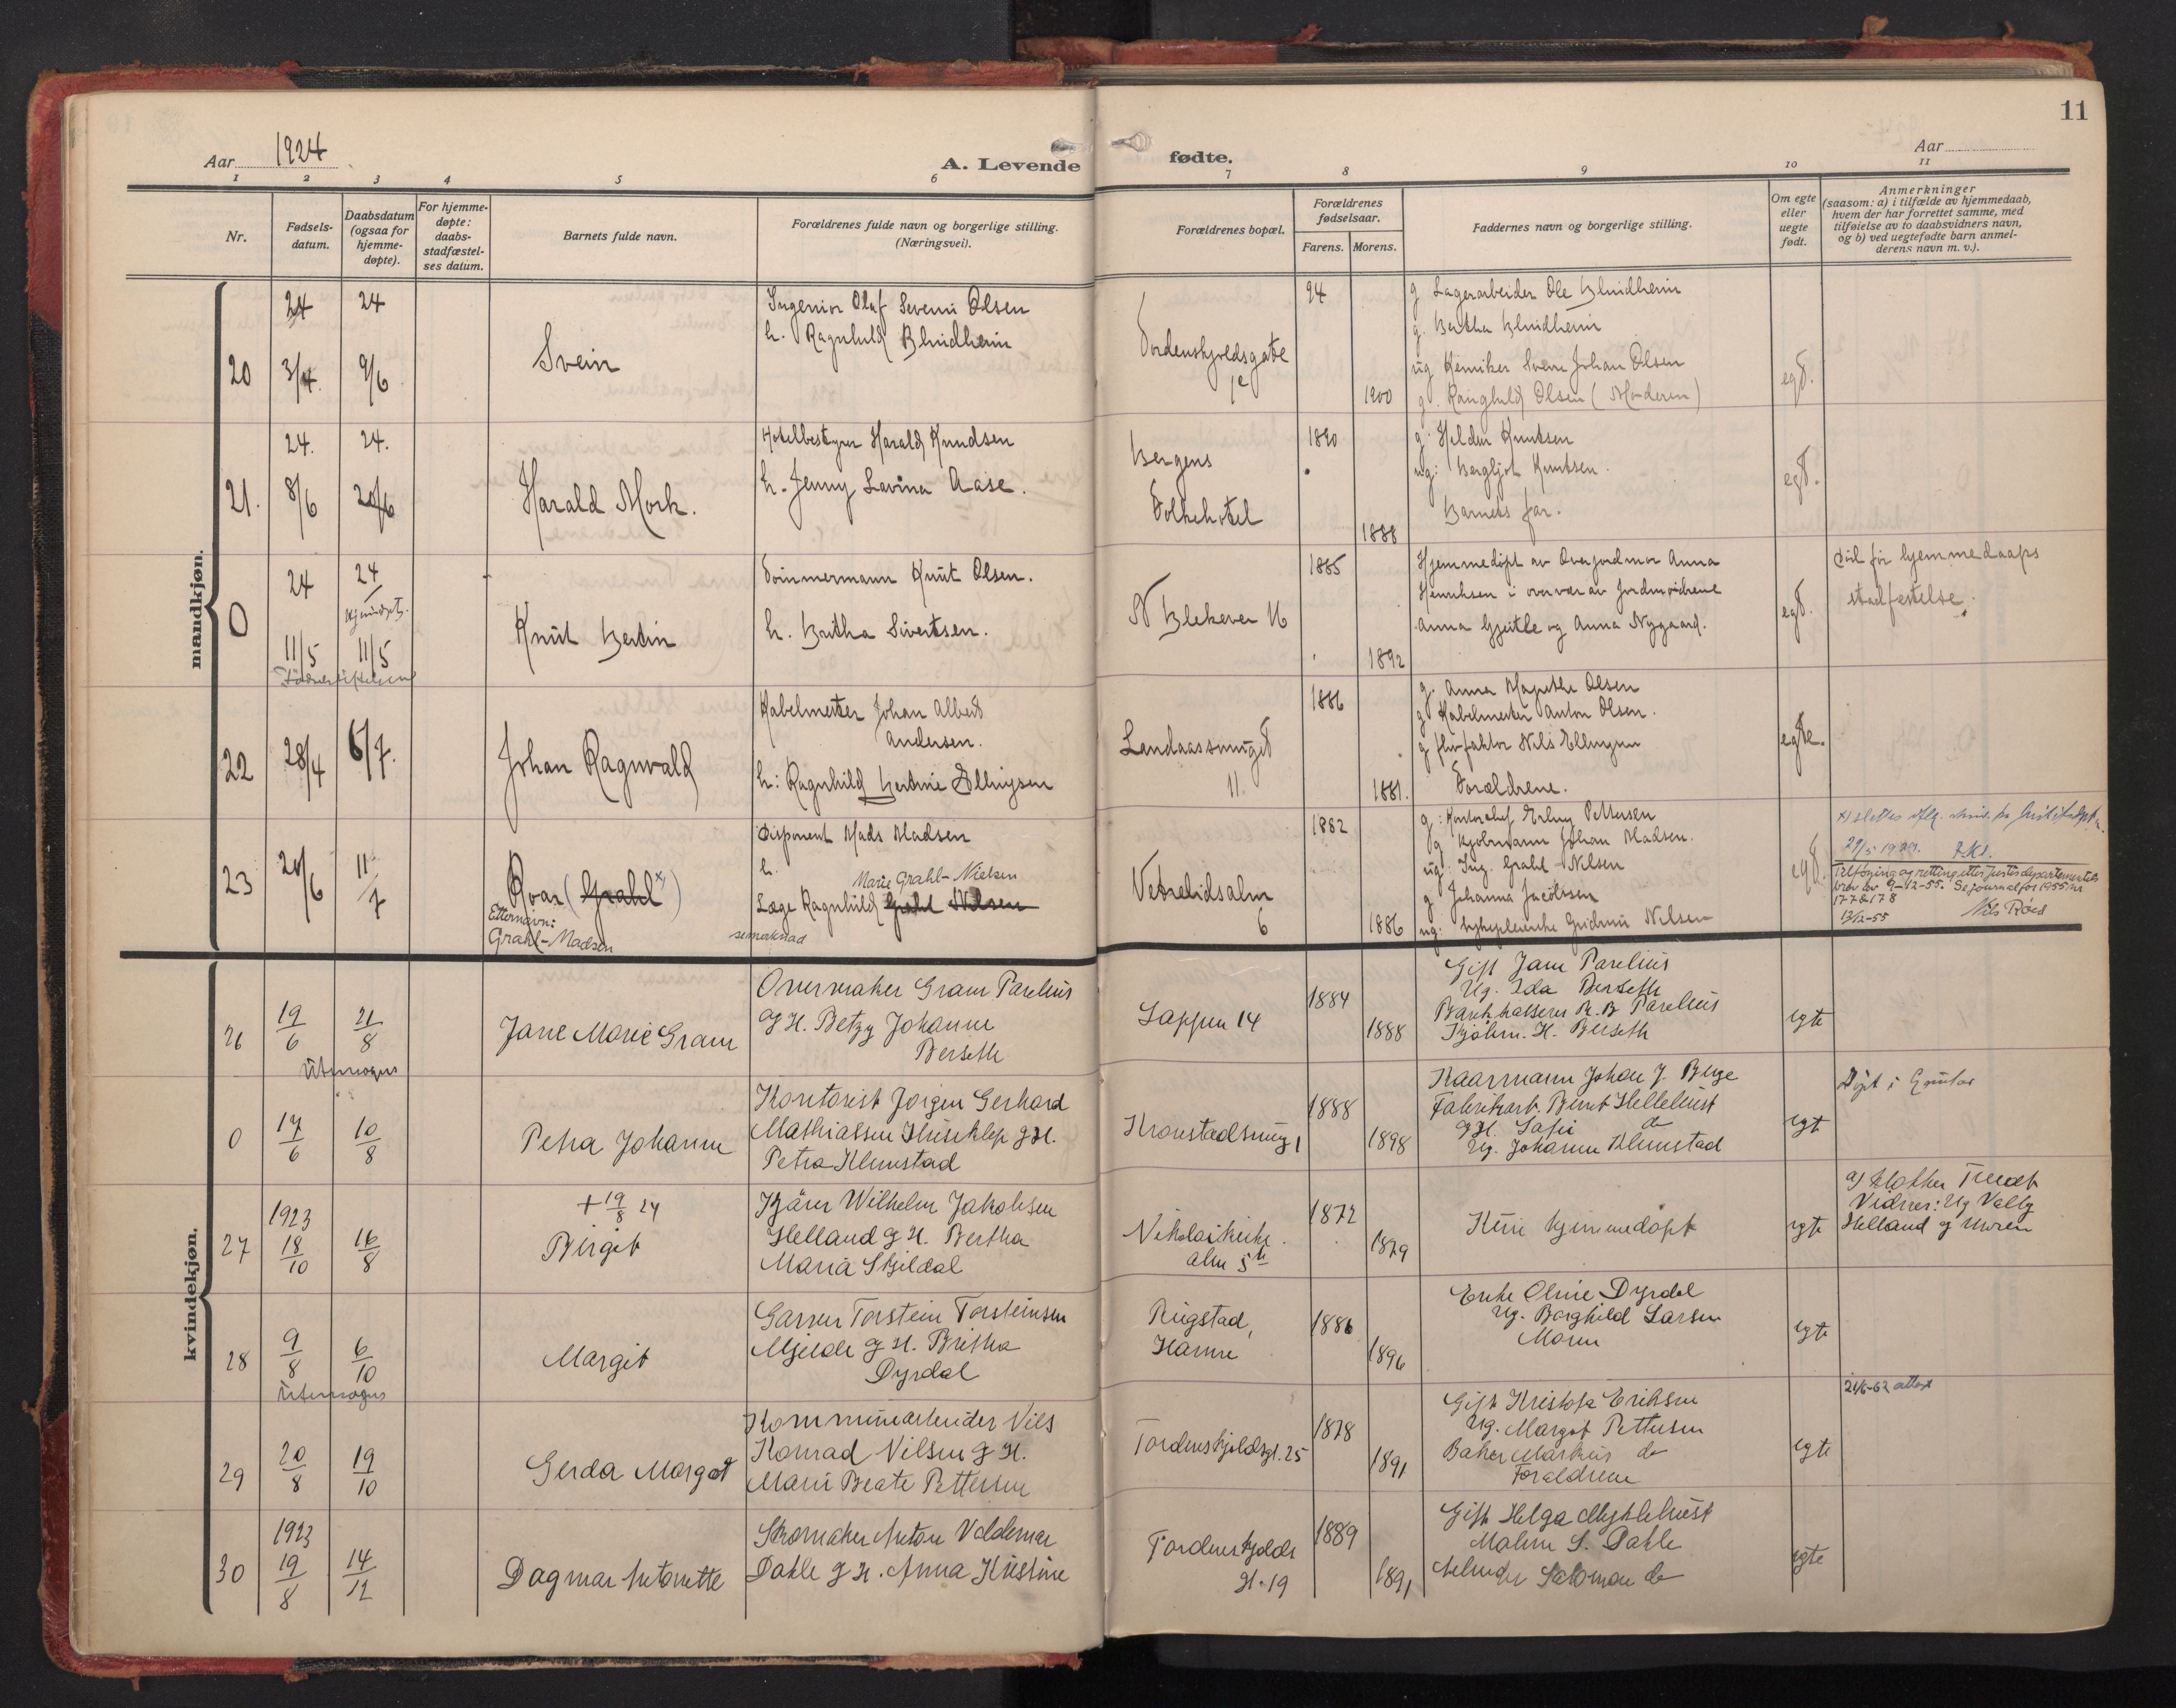 11
Aar 1924
A. Levende
fødte.
Aar
1 2 3 4 5 6 7 8 9 10 11
Nr.
Fødsels-
datum.
Daabsdatum
(ogsaa for
hjemme-
døpte).
For hjemme-
døpte:
daabs-
stadfæstel-
ses datum.
Barnets fulde navn.
Forældrenes fulde navn og borgerlige stilling.
(Næringsvei).
Forældrenes bopæl.
Forældrenes
fødselsaar.
Farens. Morens.
Faddernes navn og borgerlige stilling.
Om egte
eller
uegte
født.
Anmerkninger
(saasom: a) i tilfælde av hjemmedaab,
hvem der har forrettet samme, med
tilføielse av to daabsvidners navn,
og b) ved uegtefødte barn anmel-
derens navn m. v.).
mandkjøn.
20
24
3/4
24
9/6
Svein
Ingeniør Olaf Severin Olsen
h. Ragnhild Blindheim
Tordenskjoldsgate
94
1900
g Lagerarbeider Ole Blindheim
g. Bertha Blindheim
ug Kemiker Svein Johan Olsen
g. Ragnhild Olsen (Moderen)
egt.
21.
24.
8/6
24.
Harald Mork.
Hotelbestyrer Harald Knudsen
h. Jenny Lavina Aase.
Bergens
Folkehotel
1890
1888
g. Knutsen
ug: Bergljot Knutsen.
Barnets far.
egt.
0
24
11/5
24
11/5
Knut Bertin
Tømmermann Knut Olsen.
h. Britha Sivertsen.
N Blekevei 16
1885
1892
Hjemmedøpt av Overjordmor Anna
Henriksen i overvær av jordmødrene
Anna Gjeitle og Anna Nygaard.
egt.
ut for hjemmedaaps
stadfestelse.
22
28/4
6/7.
Johan Ragnvald
Kabelmester Johan Albert
Andersen.
h: Ragnhild Bertine Ellingsen
Landaassvinget
11.
1886
1881.
g. Anna Magrethe Olsen
g Kabelmester Anton Olsen.
g Nils Ellingsen
Forældrene.
egte.
23
20/6
11/7
Roar (Grahl x)
Etternavn:
Grahl-Madsen
Disponent Mads Madsen
h.
Marie Grahl-Nielsen
Læge Ragnhild Grahl Nilsen
se merknad
Vetrelidsalm
6
1882
1886
g: Kontorchef Erling Pettersen
g Kjøbmann Johan Madsen.
ug: Ing. Grahl-Nilsen
g Johanna Jacobsen
ug: Sykepleierske Gudrun Nilsen
egt.
Tilføying og retting etter Justisdepartementets
brev av 9-12-55. Se journal for 1955 nr
177 & 178
13/12-55 Nils Røed
kvindekjøn.
26
19/6
21/8
Utensogns
Jane Marie Gram
Overvraker Gram Parelius
g H. Betzy Johanne
Berseth
Lappen 14
1884
1888
Gift Jane Parelius
Ug. Ida Berseth
Bankkasserer R. B Parelius
Kjøbm. H. Berseth
egte
0
17/6
10/8
Petra Johanne
Kontorist Jørgen Gerhard
Mathiassen Husklep g H.
Petra Klemstad
Kronstadsving 1
1888
1898
Kaarmann Johan J. Berge
Fabrikarb. Bernt Hellebust
g H. Sofie do
Ug. Johanne Klemstad
egt
Døpt i
27
1923
18/10
16/8
+ 19/8 24
Birgit
Kjører Wilhelm Jakobsen
Helland g H. Bertha
Maria Skjeldal
Nikolaikirke
alm 5 b
1872
1879
Kun hjemmedøpt
egte
a) Klokker Tvedt
Vidner: Ug Valby
Helland og Moren
28
9/8
6/10
Utensogns
Margit
Garver Torstein Torsteinsen
Mjelde g H. Britha
Dyrdal
Ringstad,
Hamre
1886
1896
Enke Oline Dyrdal
Ug. Borghild Larsen
Moren
egte
29
20/8
19/10
Gerda Margot
Kommunearbeider Nils
Konrad Nilsen g H.
Marie Beate Pettersen
Tordenskjoldsgt. 25
1878
1891
Gift Kristofa Eriksen
Ug. Margot Pettersen
Baker Markus do
Forældrene
egte
21/6-62 attest
30
1923
19/8
14/12
Dagmar Antonette
Skomaker Anton Valdemar
Dahle g H. Anna Kristine
Tordenskjolds
gt. 19
1889
1891
Gift Helga Myklebust
Malene S. Dahle
Arbeider Salomon do
egte